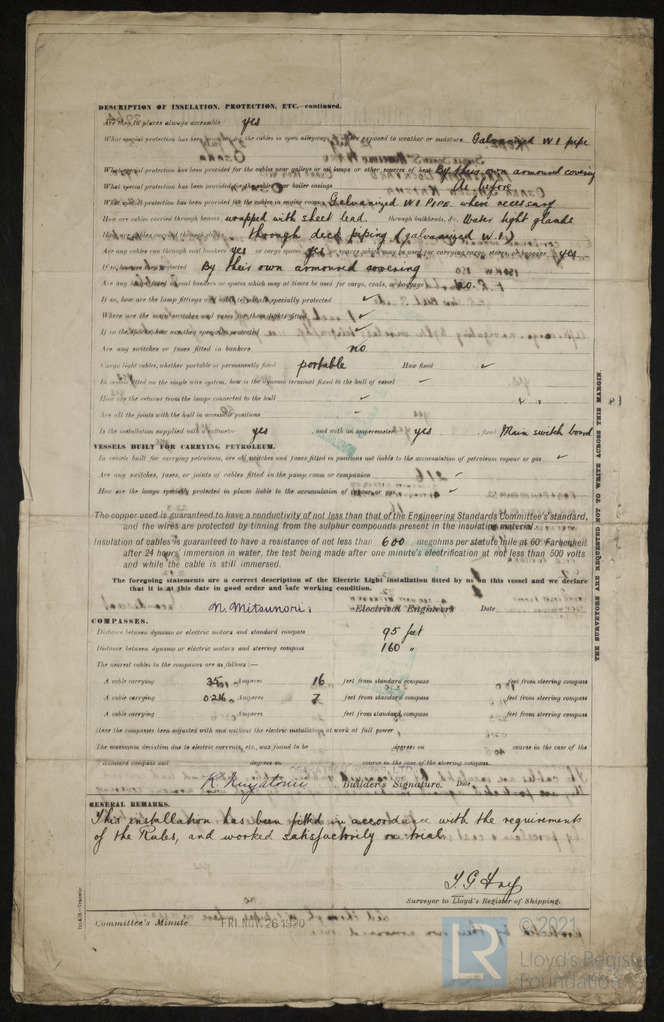 DESCRIPTION OF INSULATION, PROTECTION, ETC.—continued.
Are they in places always accessible yes
What special protection has been provided for the cables in open alleyways, exposed to weather or moisture Galvanized W I pipe
What special protection has been provided for the cables near galleys or oil lamps or other sources of heat By their own armoured covering
What special protection has been provided for the cables near boiler casings As before
What special protection has been provided for the cables in engine room Galvanized W I PIPE. where necessary
How are cables carried through beams wrapped with sheet lead. through bulkheads, &c. Water tight glands
How are cables carried through decks through deck piping (galvanized W.I.)
Are any cables run through coal bunkers yes or cargo spaces yes or spaces which may be used for carrying cargo, stores, or baggage yes
If so, how are they protected By their own armoured covering
Are any lamps fitted in coal bunkers or spaces which may at times be used for cargo, coals, or baggage no.
If so, how are the lamp fittings and cable terminals specially protected ✓
Where are the main switches and fuses for these lights fitted ✓
If in the spaces, how are they specially protected ✓
Are any switches or fuses fitted in bunkers no
Cargo light cables, whether portable or permanently fixed portable How fixed ✓
In vessels fitted on the single wire system, how is the dynamo terminal fixed to the hull of vessel ✓
How are the returns from the lamps connected to the hull ✓
Are all the joints with the hull in accessible positions ✓
Is the installation supplied with a voltmeter yes and with an amperemeter yes , fixed Main switch board
VESSELS BUILT FOR CARRYING PETROLEUM.
In vessels built for carrying petroleum, are all switches and fuses fitted in positions not liable to the accumulation of petroleum vapour or gas ✓
Are any switches, fuses, or joints of cables fitted in the pump room or companion ✓
How are the lamps specially protected in places liable to the accumulation of vapour or gas ✓
The copper used is guaranteed to have a conductivity of not less than that of the Engineering Standards Committee's standard,
and the wires are protected by tinning from the sulphur compounds present in the insulating material.
Insulation of cables is guaranteed to have a resistance of not less than 600 megohms per statute mile at 60° Farenheit
after 24 hours' immersion in water, the test being made after one minute's electrification at not less than 500 volts
and while the cable is still immersed.
The foregoing statements are a correct description of the Electric Light installation fitted by us on this vessel and we declare
that it is at this date in good order and safe working condition.
N. Mitsunori. Electrical Engineers Date
COMPASSES.
Distance between dynamo or electric motors and standard compass 95 feet
Distance between dynamo or electric motors and steering compass 160 "
The nearest cables to the compasses are as follows:—
A cable carrying Amperes 16 feet from standard compass feet from steering compass
A cable carrying 0.216 Amperes 7 feet from standard compass feet from steering compass
A cable carrying Amperes feet from standard compass feet from steering compass
Have the compasses been adjusted with and without the electric installation at work at full power
The maximum deviation due to electric currents, etc., was found to be degrees on course in the case of the
standard compass and degrees on course in the case of the steering compass.
Builder's Signature. Date
GENERAL REMARKS.
This installation has been fitted in accordance with the requirements
of the Rules, and worked satisfactorily on trial.
Surveyor to Lloyd's Register of Shipping.
Committee's Minute FRI. NOV. 26 1920
THE SURVEYORS ARE REQUESTED NOT TO WRITE ACROSS THIS MARGIN.
LR
© 2021
Lloyd's Register
Foundation